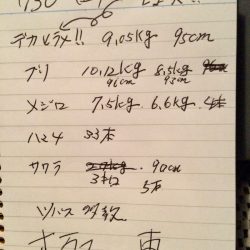 デカヒラメ!! 9.05kg 95cm
ブリ 10.12kg 8.5kg
96cm 93cm
メジロ 7.5kg 6.6kg
ハマチ 53本
サワラ 90cm
3キロ 5本
ツバス 多数